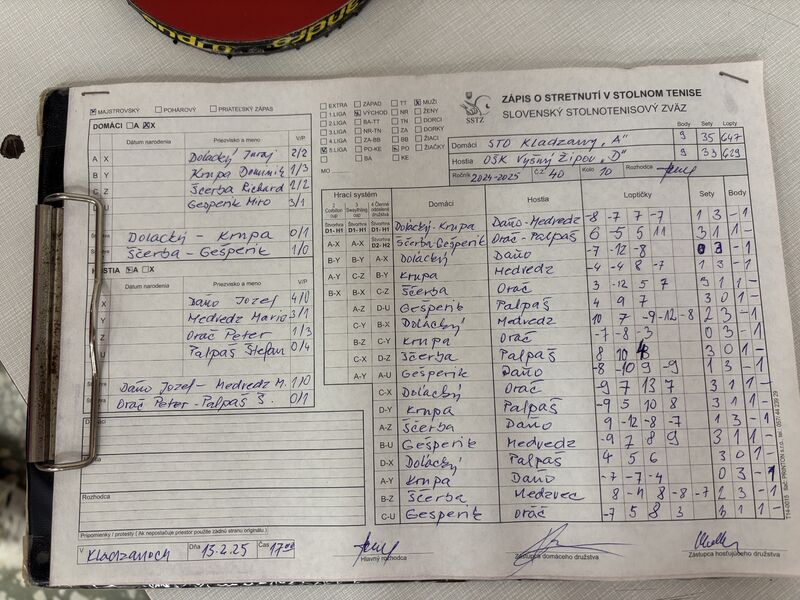 MAJSTROVSKÝ POHÁROVÝ PRIATEĽSKÝ ZÁPAS
DOMÁCI A X
Dátum narodenia Priezvisko a meno V/P
A X Dolacký Juraj 2/2
B Y Krupa Dominik 1/3
C Z Ščerba Richard 2/2
U Gešperik Miro 3/1
Dolacký - Krupa 0/1
Ščerba - Gešperik 1/0
HOSTIA A X
Dátum narodenia Priezvisko a meno V/P
X Daňo Jozef 4/0
Y Medvedz Mario 3/1
Z Oráč Peter 1/3
U Palpáš Štefan 0/4
Daňo Jozef - Medvedz M. 1/0
Oráč Peter - Palpáš Š. 0/1
Domáci
Hostia
Rozhodca
Pripomienky / protesty ( Ak nepostačuje priestor použite zadnú stranu originálu.)
V Kladzanoch Dňa 13.2.25 Čas 17:00
EXTRA ZÁPAD TT MUŽI
1.LIGA VÝCHOD NR ŽENY
2.LIGA BA-TT TN DORCI
3.LIGA NR-TN ZA DORKY
4.LIGA ZA-BB BB ŽIACI
5.LIGA PO-KE PO ŽIAČKY
BA KE
MO
SSTZ
ZÁPIS O STRETNUTÍ V STOLNOM TENISE
SLOVENSKÝ STOLNOTENISOVÝ ZVÄZ
Body Sety Lopty
Domáci STO Kladzany "A" 9 35 647
Hostia OŠK Vyšný Žipov "D" 9 33 629
Ročník 2024-2025 Č.Z 40 Kolo 10 Rozhodca
Hrací systém Domáci Hostia Loptičky Sety Body
Štvorhra D1- H1 Štvorhra D1- H1 Štvorhra D1- H1 Dolacký-Krupa Daňo-Medvedz -8 -7 7 -7 1 3 -1
A-X A-X Štvorhra D2- H2 Ščerba-Gešperik Oráč-Palpáš 6 -5 5 11 3 1 1 -
B-Y B-Y A-X Dolacký Daňo -7 -12 -8 0 3 -1
A-Y C-Z B-Y Krupa Medvedz -4 -4 8 -7 1 3 -1
B-X B-X C-Z Ščerba Oráč 3 -12 5 7 3 1 1 -
A-Z D-U Gešperik Palpáš 4 9 7 3 0 1 -
C-Y B-X Dolacký Medvedz 10 7 -9 -12 -8 2 3 -1
B-Z C-Y Krupa Oráč -7 -8 -3 0 3 -1
C-X D-Z Ščerba Palpáš 8 10 3 0 1 -
A-Y A-U Gešperik Daňo -8 -10 9 -9 1 3 -1
C-X Dolacký Oráč -9 7 13 7 3 1 1 -
D-Y Krupa Palpáš -9 5 10 8 3 1 1 -
A-Z Ščerba Daňo 9 -12 -8 -7 1 3 -1
B-U Gešperik Medvedz -9 7 8 9 3 1 1 -
D-X Dolacký Palpáš 4 5 6 3 0 1 -
A-Y Krupa Daňo -7 -7 -4 0 3 -1
B-Z Ščerba Medzvec 8 -11 8 -8 -7 2 3 -1
C-U Gešperik Oráč -7 5 8 3 3 1 1 -
Hlavný rozhodca Zástupca domáceho družstva Zástupca hosťujúceho družstva